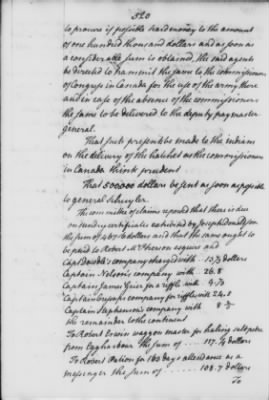 520
to procure if possible hard money to the amount
of one hundred thousand dollars and as soon as
a considerable sum is obtained, the said agents
be directed to transmit the same to the commissioners
of Congress in Canada for the use of the army there
and in case of the absence of the commissioners
the same to be delivered to the deputy paymaster
general.
That such presents be made to the indians
on the delivery of the hatchet as the commissioners
in Canada think prudent
That 500000 dollars be sent as soon as possible
to general Schuyler.
The committee of claims reported that there is due
on sundry certificates exhibited by
the sum of dollars and that the same ought to
be paid to Robert McPherson esquire and
Capt company charged with dollars
Captain Nelson's company with 26.8
Captain James Grier for rifle with
Captain Cresap's company for rifles with 24.
Captain Stephenson's company with
the remainder to the continent
To Robert Erwin waggon master for haling salt petre
from Eggharbour the sum of 117. dollars
To Robert Patton for days attendance as a
messenger the sum of 108.7 dollars
To